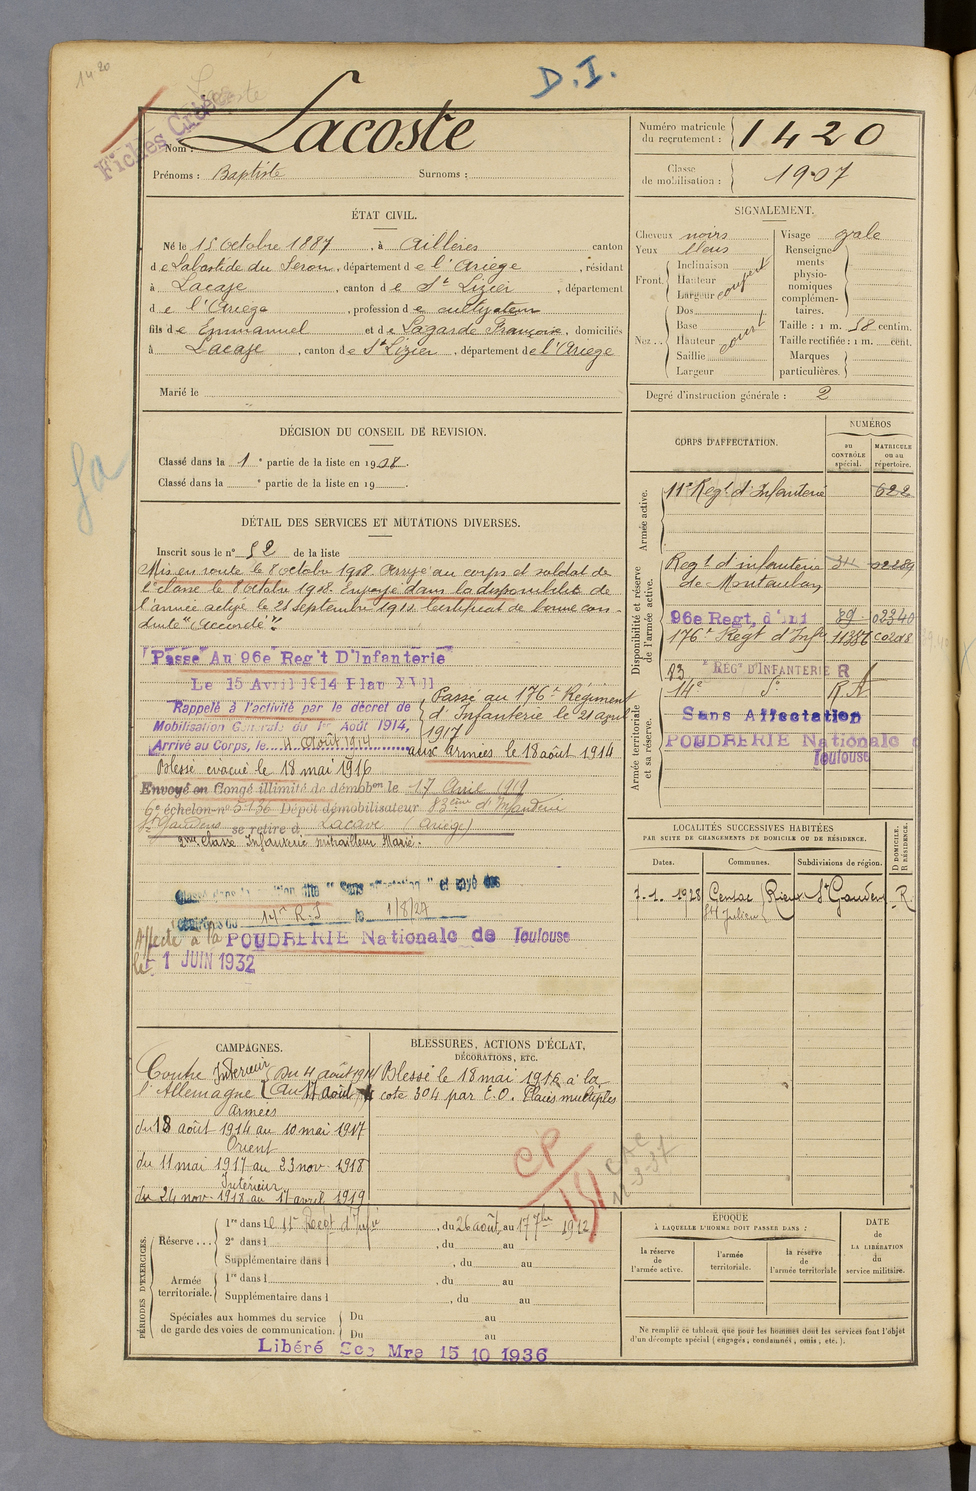 1420
D.I.
Lacoste
Fiches Créées
Nom : Lacoste
Prénoms : Baptiste Surnoms :
Numéro matricule du recrutement : 1420
Classe de mobilisation : 1907
ÉTAT CIVIL.
Né le 15 Octobre 1887, à Aillères canton
de Labastide du Seron, département de l'Ariège, résidant
à Lacave, canton de St Lizier, département
de l'Ariège, profession de cultivateur
fils de Emmanuel et de Lagarde Françoise, domiciliés
à Lacave, canton de St Lizier, département de l'Ariège
Marié le
SIGNALEMENT.
Cheveux noirs
Yeux bleus
Front. Inclinaison
Hauteur
Largeur
Nez... Dos
Base
Hauteur
Saillie
Largeur
court
Visage
Renseignements physionomiques complémentaires.
Taille : 1 m. 58 centim.
Taille rectifiée : 1 m. cent.
Marques particulières.
Degré d'instruction générale : 2
DÉCISION DU CONSEIL DE REVISION.
Classé dans la 1e partie de la liste en 1908.
Classé dans la e partie de la liste en 19 .
DÉTAIL DES SERVICES ET MUTATIONS DIVERSES.
Inscrit sous le n° 52 de la liste
Mis en route le 8 octobre 1908. Arrivé au corps et soldat de
2e classe le 8 octobre 1908. Envoyé dans la disponibilité de
l'armée active le 25 septembre 1910. Certificat de bonne con-
duite "Accordé".
Passé Au 96e Reg't D'Infanterie
Le 15 Avril 1914 Plan XVII
Rappelé à l'activité par le décret de
Mobilisation Générale du 1er Août 1914,
Arrivé au Corps, le 4 Août 1914
Passé au 176e Régiment
d'Infanterie le 21 avril
1917
aux armées le 18 août 1914
Blessé évacué le 18 mai 1916
Envoyé en Congé illimité de démobon le 17 Avril 1919
6e échelon n° 5136 Dépôt démobilisateur 83ème d'Infanterie
St Gaudens se retire à Lacave (Ariège)
2me Classe Infanterie Mitrailleur Marié.
Classé dans la position dite "Sans affectation" et rayé des
contrôles du 14e R.I le 1/8/27
Affecté à la POUDRERIE Nationale de Toulouse
le 1 JUIN 1932
CORPS D'AFFECTATION.
NUMÉROS
au CONTRÔLE spécial.
MATRICULE ou au répertoire.
Armée active.
11e Regt d'Infanterie 622
Disponibilité et réserve de l'armée active.
Regt d'infanterie
de Montauban
96e Regt, d'Inf 89 02340
176e Regt d'Infie
RÉG D'INFANTERIE R
Armée territoriale et sa réserve.
14e
Sans Affectation
POUDRERIE Nationale d
Toulouse
LOCALITÉS SUCCESSIVES HABITÉES
PAR SUITE DE CHANGEMENTS DE DOMICILE OU DE RÉSIDENCE.
Dates. Communes. Subdivisions de région. D DOMICILE. R RÉSIDENCE.
7.1.1928 Gensac St Julien (Rieux) St Gaudens R
CAMPAGNES.
Contre l'Allemagne
Intérieur Du 4 août 1914
au 17 août 14
Armées
du 18 août 1914 au 10 mai 1917
Orient
du 11 mai 1917 au 23 nov. 1918
Intérieur
du 24 nov. 1918 au 17 avril 1919
BLESSURES, ACTIONS D'ÉCLAT,
DÉCORATIONS, ETC.
Blessé le 18 mai 1916 à la
cote 304 par E.O. Plaies multiples
CP
PÉRIODES D'EXERCICES.
Réserve... 1re dans le 11e Regt d'Infie, du 26 août au 17 7bre 1912
2e dans l , du au
Supplémentaire dans l , du au
Armée territoriale. 1re dans l , du au
Supplémentaire dans l , du au
Spéciales aux hommes du service
de garde des voies de communication. Du au
Du au
Libéré Sce Mre 15 10 1936
ÉPOQUE
À LAQUELLE L'HOMME DOIT PASSER DANS :
la réserve de l'armée active.
l'armée territoriale.
la réserve de l'armée territoriale
DATE
de
LA LIBÉRATION
du
service militaire.
Ne remplir ce tableau que pour les hommes dont les services font l'objet
d'un décompte spécial (engagés, condamnés, omis, etc.).